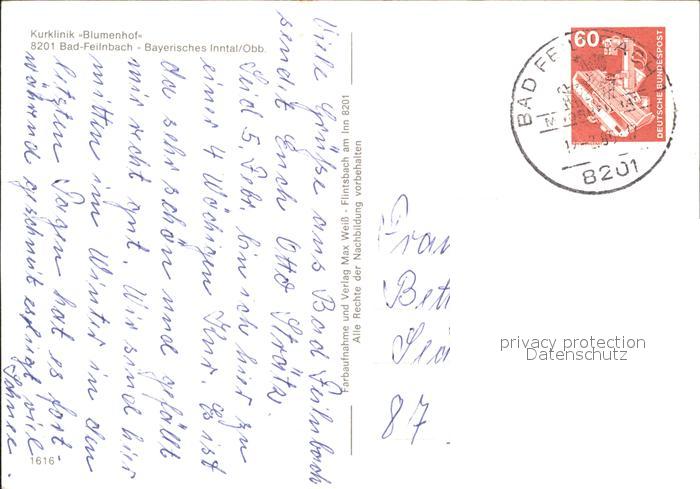 Kurklinik »Blumenhof«
8201 Bad-Feilnbach - Bayerisches Inntal/Obb.
Viele Grüße aus Bad Feilnbach
sendet Euch Otto Strätz.
Seid 5. Febr. bin ich hier zu
einer 4 Wöchigen Kur. Es ist
da sehr schön und gefällt
mir recht gut. Wir sind hier
mitten im Winter in den
letzten Tagen hat es fort-
während geschneit es liegt viel
Schnee.
1616
Farbaufnahme und Verlag Max Weiß - Flintsbach am Inn 8201
Alle Rechte der Nachbildung vorbehalten
60
DEUTSCHE BUNDESPOST
BAD FEILNBACH
8201
Frau
Bet
87
privacy protection
Datenschutz